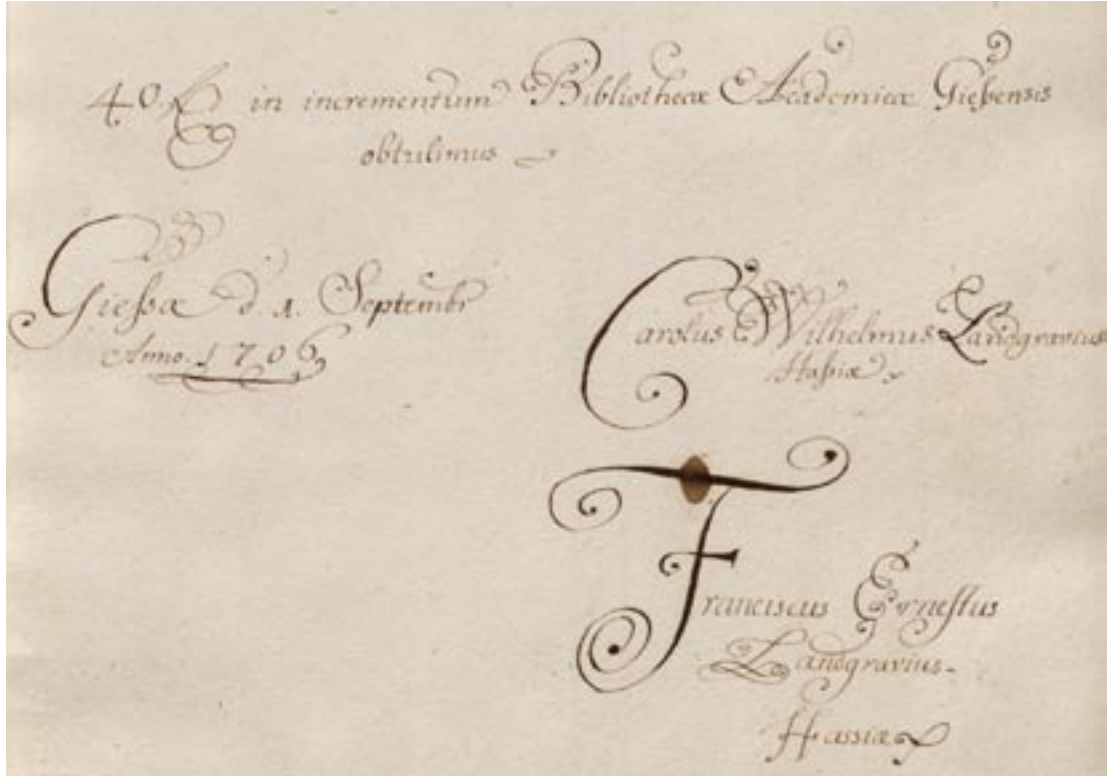 40. in incrementum Bibliothecæ Academicæ Gießensis
obtulimus
Gießæ d. 1. Septembr
Anno. 1706
Carolus Wilhelmus Landgravius
Haßiæ
Franciscus Ernestus
Landgravius
Hassiæ